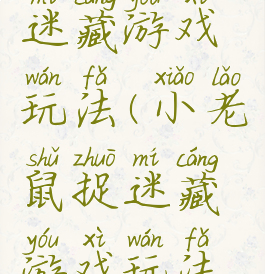 mí cáng yóu xì
迷藏游戏
wán fǎ xiǎo lǎo
玩法(小老
shǔ zhuō mí cáng
鼠捉迷藏
yóu xì wán fǎ
游戏玩法